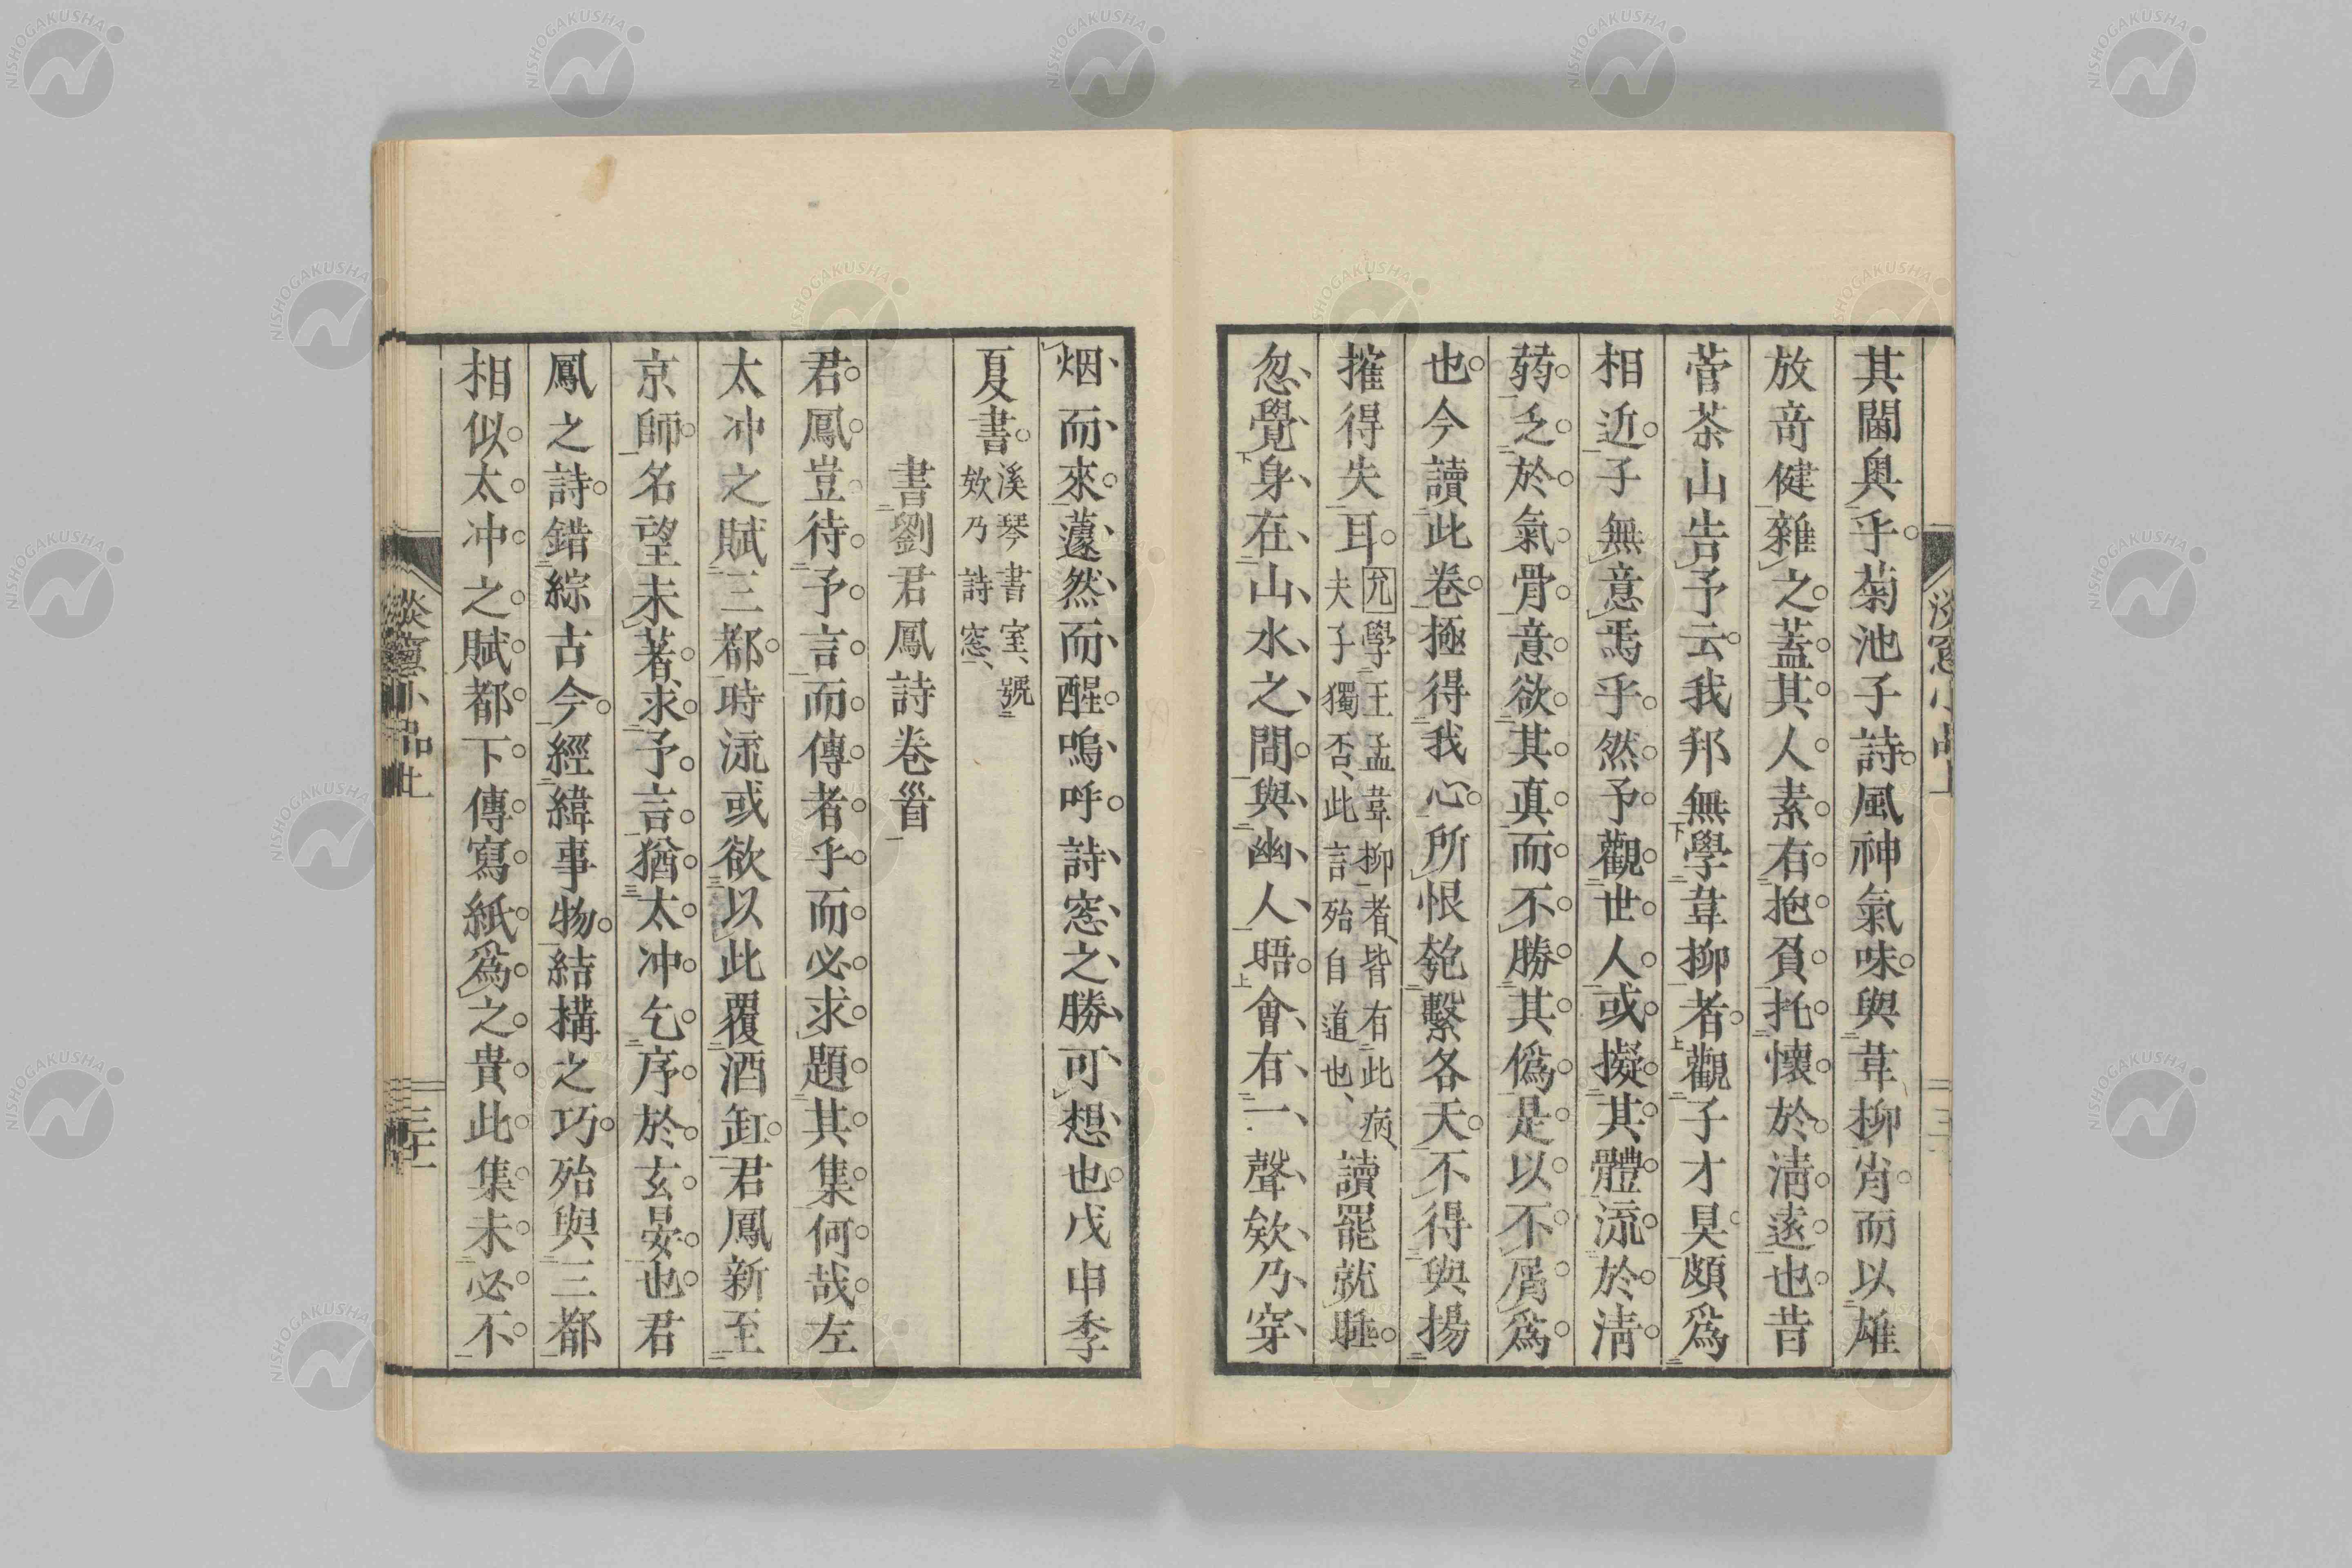 其閫奥乎菊池子詩風神氣味與韋柳肖而以雄
放奇健雜之蓋其人素有抱負托懷於淸遠也昔
菅茶山告予云我邦無學韋柳者觀子才具頗爲
相近子無意焉乎然予觀世人或擬其體流於淸
弱乏於氣骨意欲其真而不勝其僞是以不屑爲
也今讀此卷極得我心所恨匏繫各天不得與揚
搉得失耳
允學王孟韋柳者皆有此病
夫子獨否此言殆自道也
讀罷就睡
忽覺身在山水之間與幽人晤會有一聲欸乃穿
烟而來蘧然而醒嗚呼詩窓之勝可想也戊申季
夏書
溪琴書室號
欸乃詩窓
書劉君鳳詩卷首
君鳳豈待予言而傳者乎而必求題其集何哉左
太冲之賦三都時流或欲以此覆酒缸君鳳新至
京師名望未著求予言猶太冲乞序於玄晏也君
鳳之詩錯綜古今經緯事物結構之巧殆與三都
相似太冲之賦都下傳寫紙爲之貴此集未必不
淡窻小品上
三十一
NISHOGAKUSHA